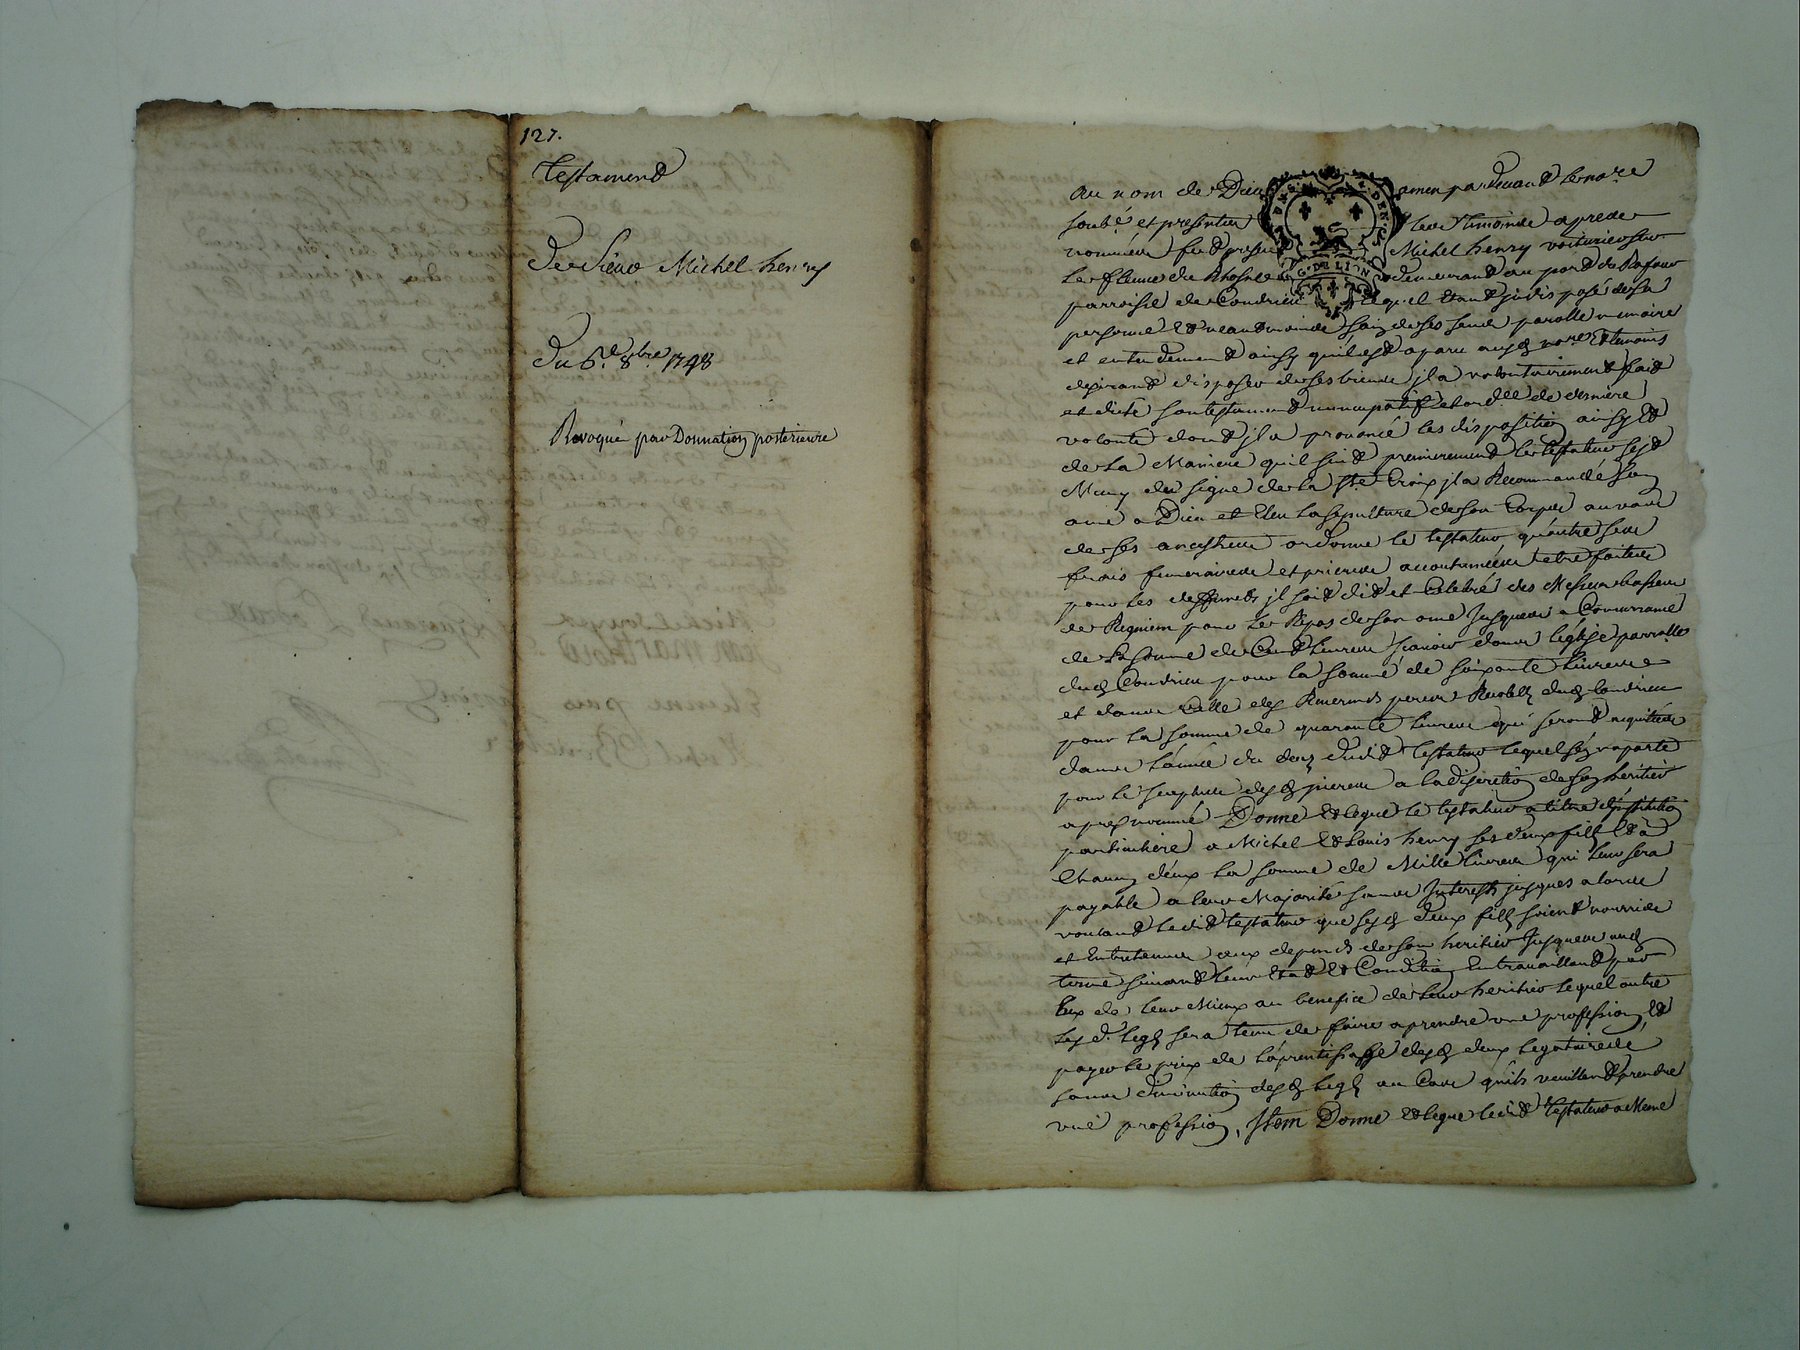 127.
Testament
De Sieur Michel henry
Du 6e. 8bre. 1748
Revoqué par Donnation posterieure
Au nom de Dieu amen pardevant le nore
soubé. et presents les temoins apres
nommés fut present Michel henry voiturier sur
le fleuve du Rhosne demeurant au port du
parroisse de Condrieu lequel etant jndisposé de sa
personne et neantmoins sain de ses sens parolle memoire
et entendement ainsy quil est aparu audt nore et temoins
desirant disposer de ses biens jl a volontairement fait
et dicté son testament nuncupatif et ordce de derniere
volonté dont jl a prononcé les disposition ainsy et
de la Maniere quil suit premierement le testateur sest
Muny du signe de la Ste Croix jl a Recommandé son
ame a Dieu et Eleu la sepulture de son Corps au vas
de ses ancestres ordonne le testateur quoutre les
frais funeraires et prieres accoutumées etre faites
pour les deffunts jl soit dit et Celebré des Messes basses
de Requiem pour le Repos de son ame Jusques a Concurrance
de la somme de Cent livres scavoir dans léglise parrolle
dudt Condrieu pour la somme de soixante livres
et dans Celle des Reverends peres Recolets dudt Condrieu
pour la somme de quarante livres qui seront acquittées
dans l'année du deces dudit testateur lequel sén raporte
pour le surplus desdt prieres a la discretion de son heritier
apres nommé Donne et legue le testateur a titre d'jnstitution
particuliere a Michel et Louis henry ses deux fils et a
Chacun déux la somme de Mille livres qui leur sera
payable a leur Majorité sans Interests jusques alors
voulant ledit testateur que sesdt deux fils soient nourris
et Entretenus aux depends de son heritier Jusques audt
terme suivant leur Etat et Condition En travaillant par
Eux de leur Mieux au benefice de leur heritier lequel outre
lesd. legs sera tenu de faire aprendre une profession et
payer le prix de láprentissage desdt deux legataires
sans diminution desdt legs au Cas quils veuillent prendre
une profession, Item Donne et legue ledit testateur a Meme
G. DE LION